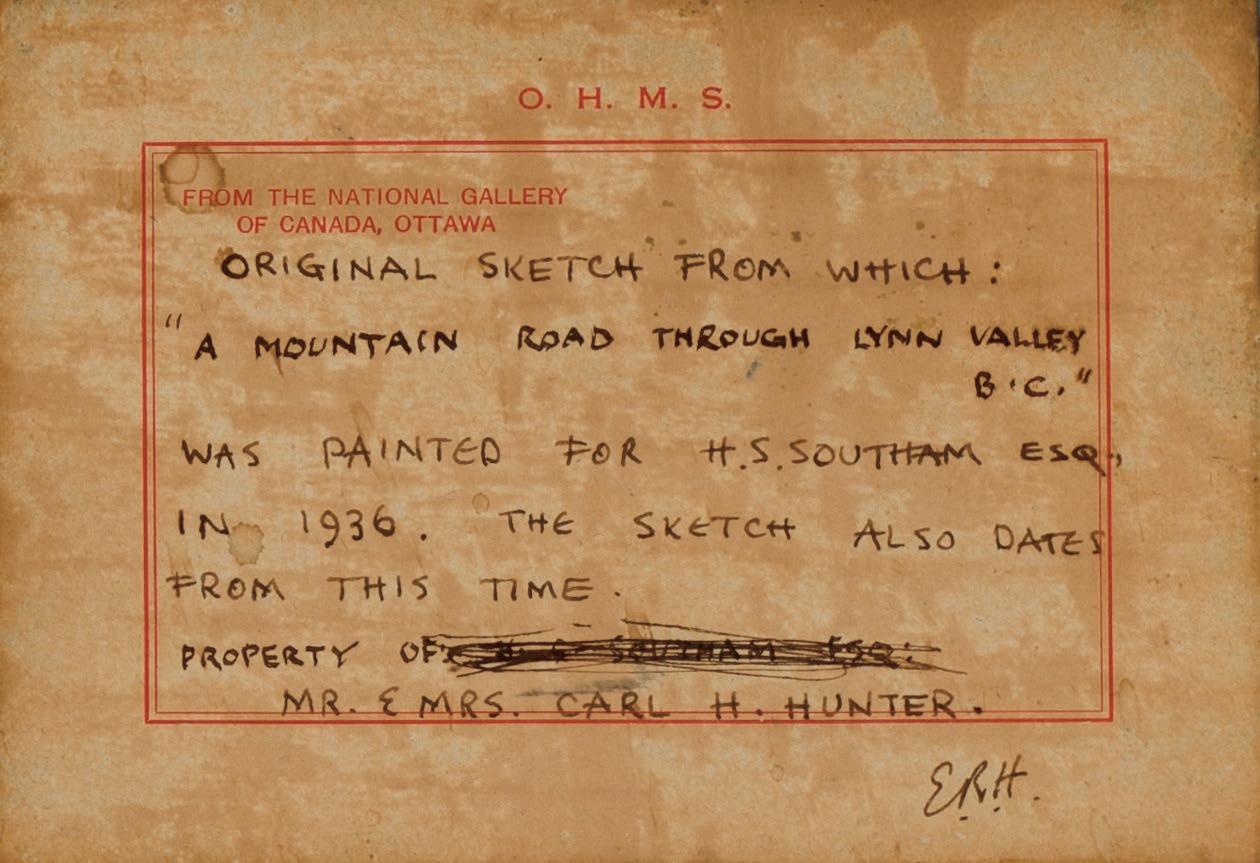 O. H. M. S.
FROM THE NATIONAL GALLERY
OF CANADA, OTTAWA
ORIGINAL SKETCH FROM WHICH :
"A MOUNTAIN ROAD THROUGH LYNN VALLEY
B.C."
WAS PAINTED FOR H.S. SOUTHAM ESQ.,
IN 1936. THE SKETCH ALSO DATES
FROM THIS TIME.
PROPERTY OF H. S. SOUTHAM ESQ:
MR. & MRS. CARL H. HUNTER.
E.R.H.